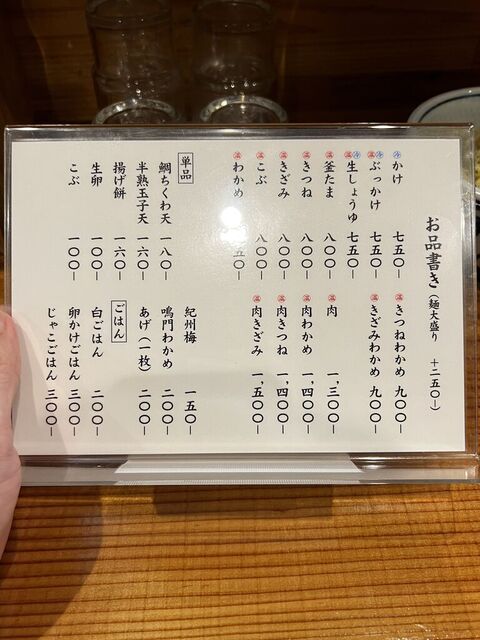 お品書き（麺大盛り　＋二五〇-）
冷 かけ　七五〇-
温 冷 ぶっかけ　七五〇-
温 冷 生しょうゆ　七五〇-
温 釜たま　八〇〇-
温 きつね　八〇〇-
温 きざみ　八〇〇-
温 こぶ　八〇〇-
温 わかめ　五〇-
温 きつねわかめ　九〇〇-
温 きざみわかめ　九〇〇-
温 肉　一,三〇〇-
温 肉わかめ　一,四〇〇-
温 肉きつね　一,四〇〇-
温 肉きざみ　一,五〇〇-
単品
鯛ちくわ天　一八〇-
半熟玉子天　一六〇-
揚げ餅　一六〇-
生卵　一〇〇-
こぶ　一〇〇-
紀州梅　一五〇-
鳴門わかめ　二〇〇-
あげ（一枚）　二〇〇-
ごはん
白ごはん　二〇〇-
卵かけごはん　三〇〇-
じゃこごはん　三〇〇-